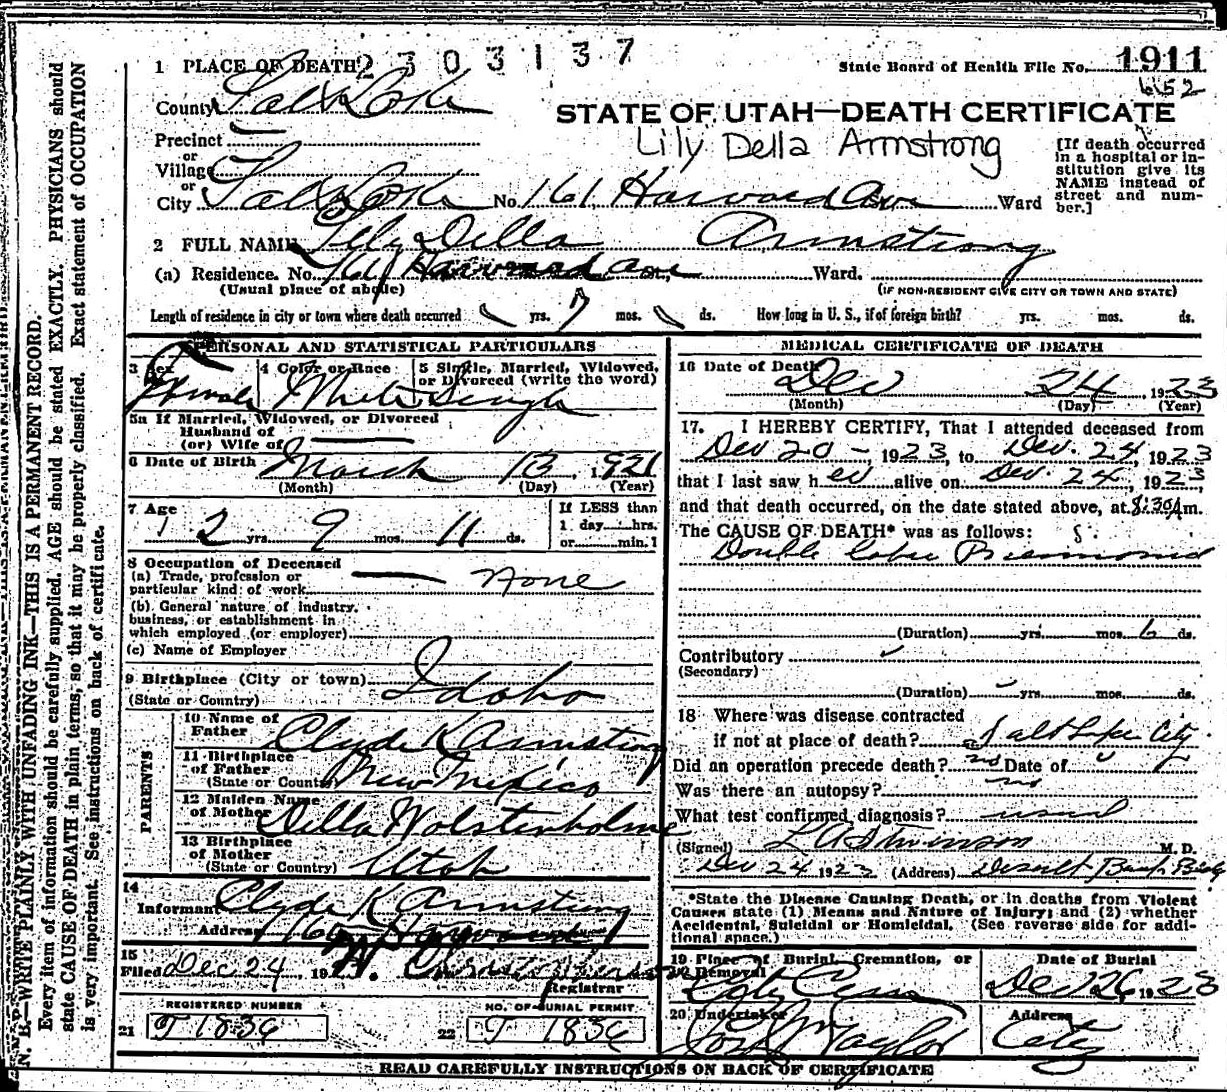 2 3 0 3 1 3 7
1 PLACE OF DEATH
State Board of Health File No. 1911
652
County Salt Lake
STATE OF UTAH—DEATH CERTIFICATE
Lily Della Armstrong
Precinct
or
Village
or
City Salt Lake No. 161 Harvard Ave Ward
[If death occurred
in a hospital or in-
stitution give its
NAME instead of
street and num-
ber.]
2 FULL NAME Lily Della Armstrong
(a) Residence. No. 161 Harvard Ave Ward.
(Usual place of abode)
(IF NON-RESIDENT GIVE CITY OR TOWN AND STATE)
Length of residence in city or town where death occurred yrs. 7 mos. ds. How long in U. S., if of foreign birth? yrs. mos. ds.
PERSONAL AND STATISTICAL PARTICULARS
3 Sex
Female
4 Color or Race
White
5 Single, Married, Widowed,
or Divorced (write the word)
Single
5a If Married, Widowed, or Divorced
Husband of
(or) Wife of
6 Date of Birth March 13, 1921
(Month) (Day) (Year)
7 Age
2 yrs. 9 mos. 11 ds.
If LESS than
1 day hrs.
or min.
8 Occupation of Deceased
(a) Trade, profession or
particular kind of work None
(b) General nature of industry,
business, or establishment in
which employed (or employer)
(c) Name of Employer
9 Birthplace (City or town)
(State or Country) Idaho
PARENTS
10 Name of
Father Clyde K Armstrong
11 Birthplace
of Father
(State or Country) New Mexico
12 Maiden Name
of Mother Della Wolstenholme
13 Birthplace
of Mother
(State or Country) Utah
14
Informant Clyde K Armstrong
Address
15
Filed Dec 24, 192
Registrar
REGISTERED NUMBER
21 T 1836
NO. OF BURIAL PERMIT
22 T 1836
MEDICAL CERTIFICATE OF DEATH
16 Date of Death
Dec 24, 1923
(Month) (Day) (Year)
17. I HEREBY CERTIFY, That I attended deceased from
Dec 20 - 1923, to Dec. 24, 1923
that I last saw her alive on Dec. 24, 1923,
and that death occurred, on the date stated above, at 8:30 A m.
The CAUSE OF DEATH* was as follows:
Double Lobar Pneumonia
(Duration) yrs. mos. 6 ds.
Contributory
(Secondary)
(Duration) yrs. mos. ds.
18 Where was disease contracted
if not at place of death? Salt Lake City
Did an operation precede death? no Date of
Was there an autopsy? no
What test confirmed diagnosis? usual
(Signed) L A Stevenson M. D.
Dec 24 1923 (Address) Deseret Bank Bldg
*State the Disease Causing Death, or in deaths from Violent
Causes state (1) Means and Nature of Injury; and (2) whether
Accidental, Suicidal or Homicidal. (See reverse side for addi-
tional space.)
19 Place of Burial, Cremation, or
Removal
City Cem
Date of Burial
Dec 26 1923
20 Undertaker
Jos Wm Taylor
Address
City
READ CAREFULLY INSTRUCTIONS ON BACK OF CERTIFICATE
N. B.—WRITE PLAINLY WITH UNFADING INK—THIS IS A PERMANENT RECORD.
Every item of information should be carefully supplied. AGE should be stated EXACTLY. PHYSICIANS should
state CAUSE OF DEATH in plain terms, so that it may be properly classified. Exact statement of OCCUPATION
is very important. See instructions on back of certificate.